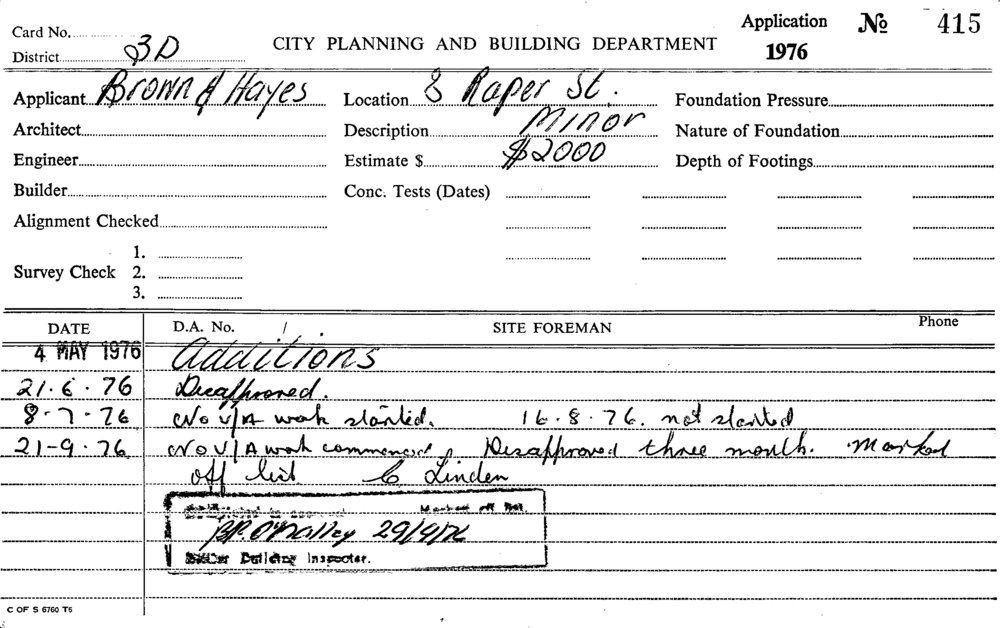 Card No.
Application № 415
District 3D
CITY PLANNING AND BUILDING DEPARTMENT
1976
Applicant Brown & Hayes
Location 8 Raper St.
Foundation Pressure
Architect
Description Minor
Nature of Foundation
Engineer
Estimate $ $2000
Depth of Footings
Builder
Conc. Tests (Dates)
Alignment Checked
Survey Check
1.
2.
3.
DATE
D.A. No. /
SITE FOREMAN
Phone
4 MAY 1976 Additions
21.6.76 Disapproved.
8-7-76 No U/A work started. 16.8.76. not started
21-9.76 No U/A work commenced, Disapproved three month. Marked
off list C Linden
Marked off list.
B.P. O'Malley 29/9/76
Building Inspector.
C OF S 6760 T6